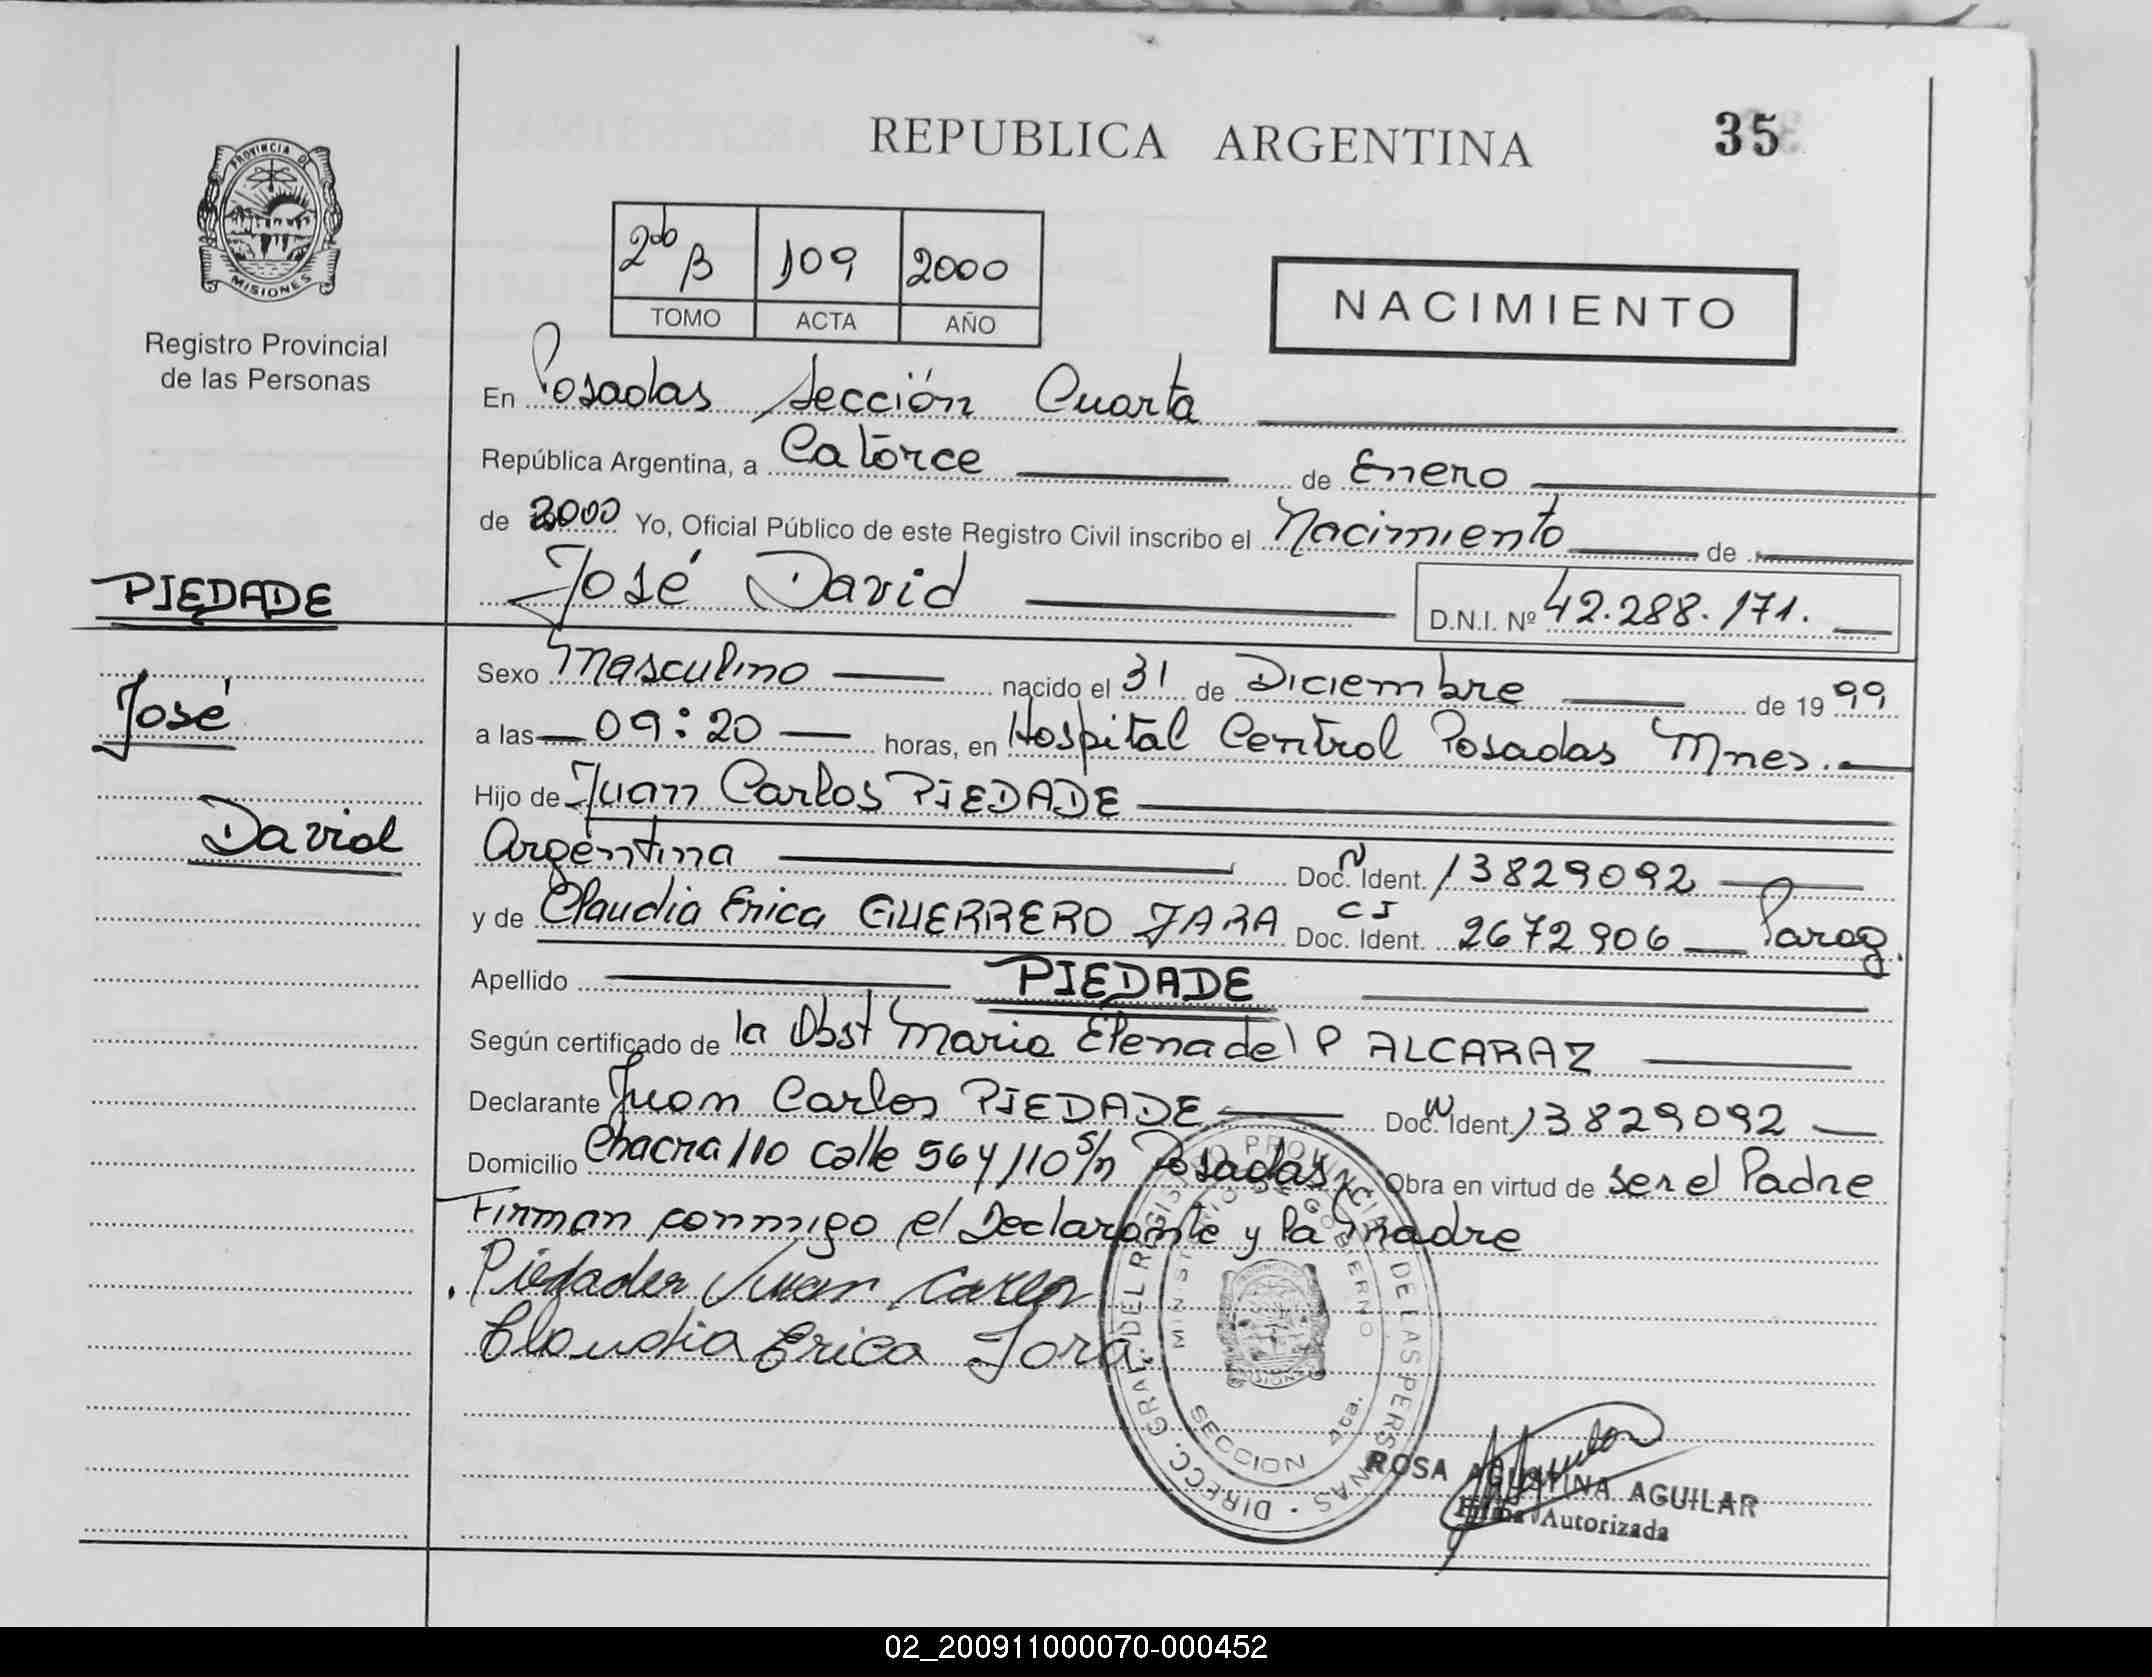 REPUBLICA ARGENTINA
35
PROVINCIA DE
MISIONES
Registro Provincial
de las Personas
2do B 109 2000
TOMO ACTA AÑO
NACIMIENTO
En Posadas Sección Cuarta
República Argentina, a Catorce de Enero
de 2000 Yo, Oficial Público de este Registro Civil inscribo el Nacimiento de
José David D.N.I. Nº 42.288.171.
PIEDADE
José
David
Sexo Masculino nacido el 31 de Diciembre de 1999
a las 09:20 horas, en Hospital Central Posadas Mnes.
Hijo de Juan Carlos PIEDADE
Argentina Doc. N Ident. 13829092
y de Claudia Erica GUERRERO JARA CI Doc. Ident. 2672906 Parag.
Apellido PIEDADE
Según certificado de la Obst Maria Elena del P ALCARAZ
Declarante Juan Carlos PIEDADE Doc. N Ident. 13829092
Domicilio Chacra 110 Calle 56 y 110 s/n Posadas Obra en virtud de ser el Padre
Firman conmigo el Declarante y la Madre
Piedade Juan Carlos
Claudia Erica Jara
DIRECC. GRAL. DEL REGISTRO PROVINCIAL DE LAS PERSONAS
MINISTERIO DE GOBIERNO
SECCION 4ta.
ROSA AGUSTINA AGUILAR
Firma Autorizada
02_200911000070-000452